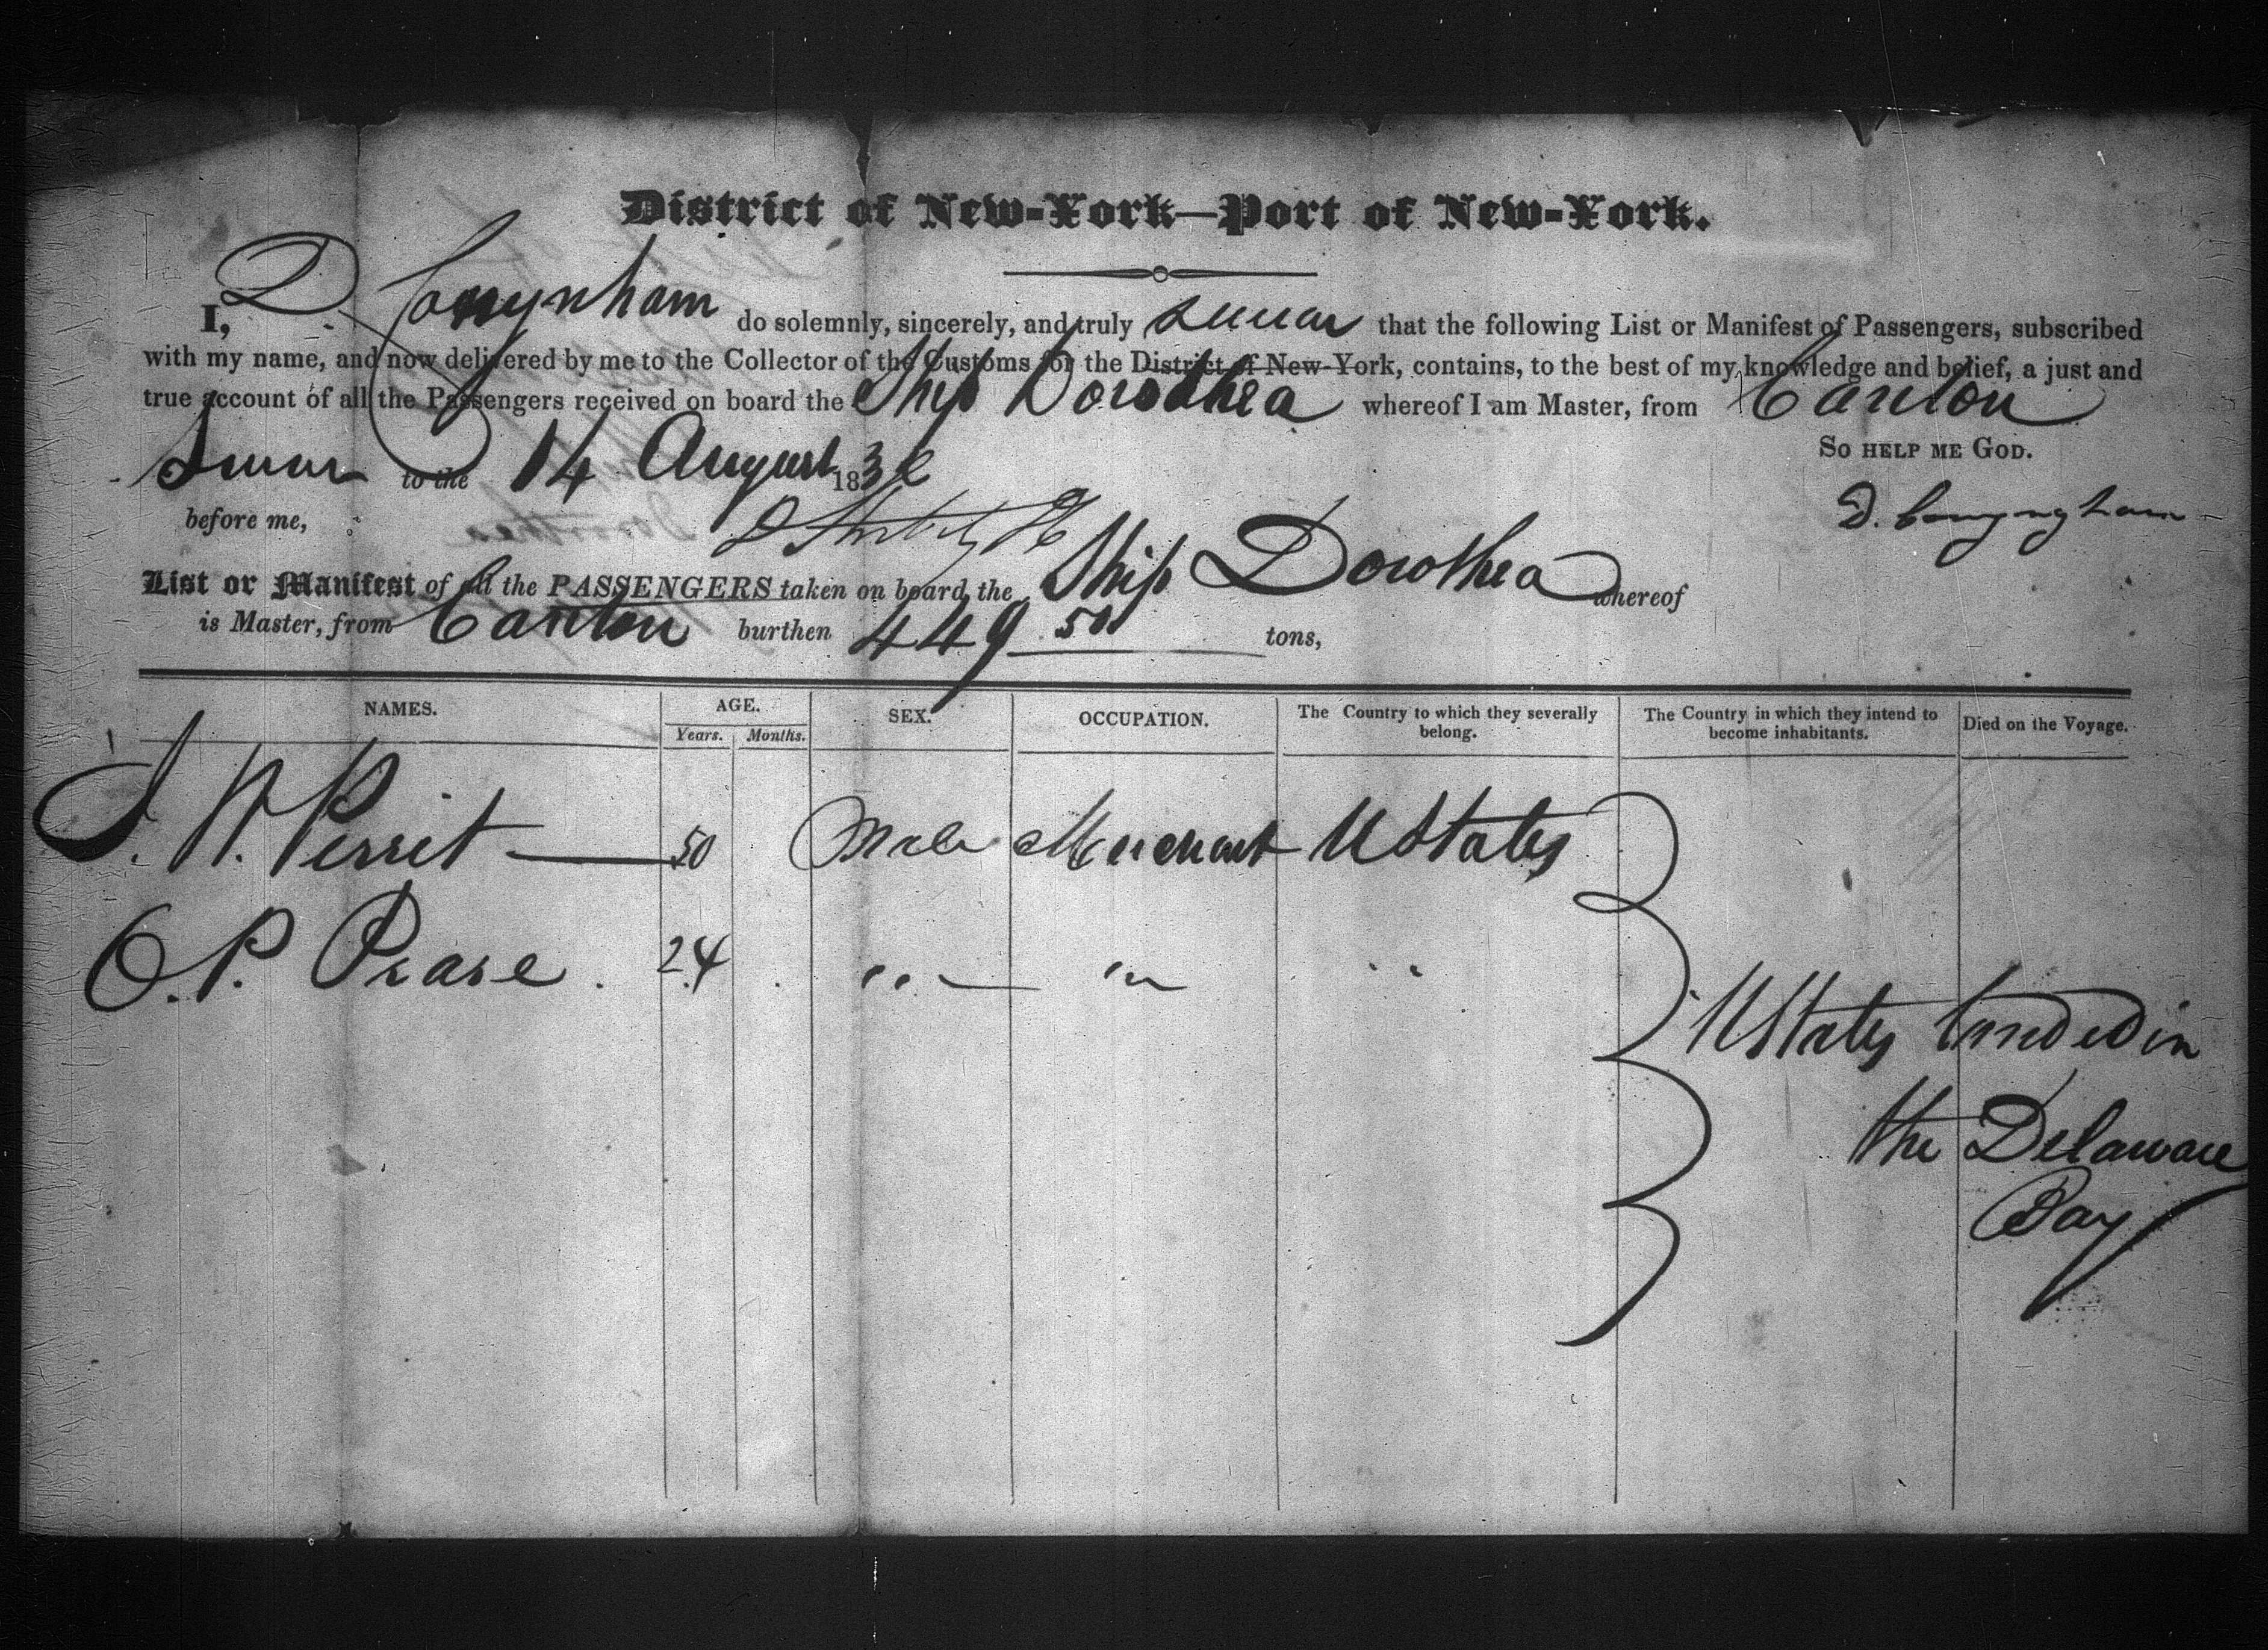 District of New-York—Port of New-York.
I, D Conyngham do solemnly, sincerely, and truly swear that the following List or Manifest of Passengers, subscribed
with my name, and now delivered by me to the Collector of the Customs for the District of New-York, contains, to the best of my knowledge and belief, a just and
true account of all the Passengers received on board the Ship Dorothea whereof I am Master, from Canton
Sworn to the 14 August 183
So help me God.
before me,
D. Conyngham
List or Manifest of all the PASSENGERS taken on board the Ship Dorothea whereof
is Master, from Canton burthen 449 50 tons,
NAMES. AGE. SEX. OCCUPATION. The Country to which they severally belong. The Country in which they intend to become inhabitants. Died on the Voyage.
Years. Months.
J. W. Perrit 50 Male Merchant U States
O. P. Pease. 24 " " "
U States landed in
the Delaware
Bay